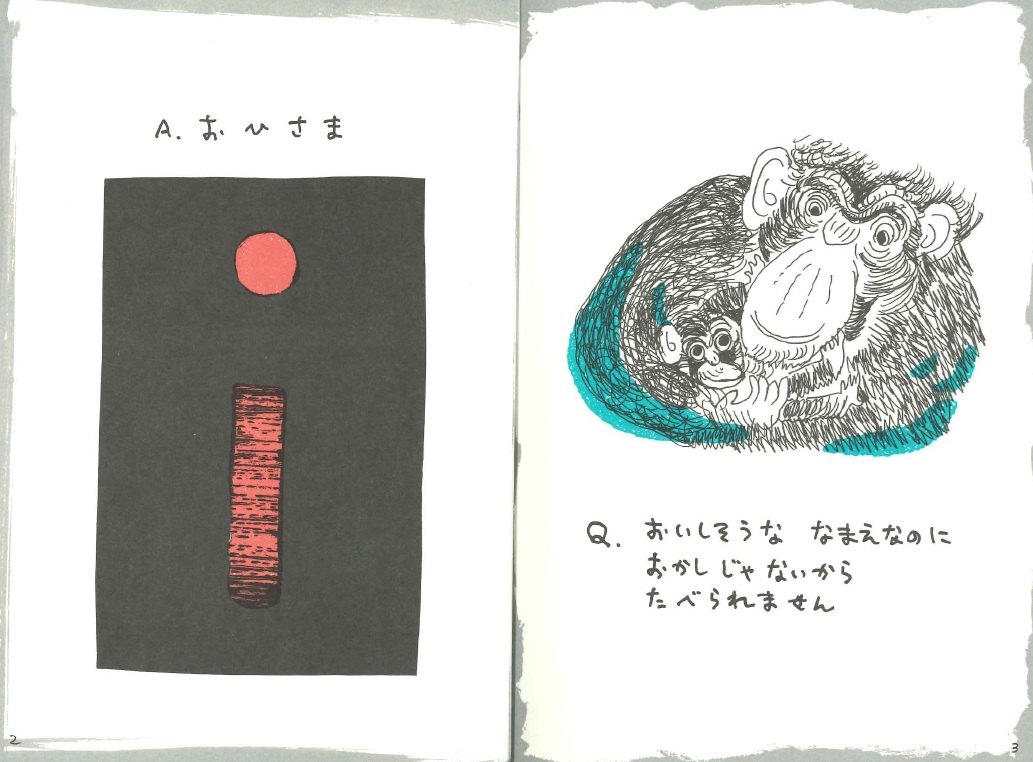 A. おひさま
2
Q. おいしそうな なまえなのに
おかしじゃないから
たべられません
3